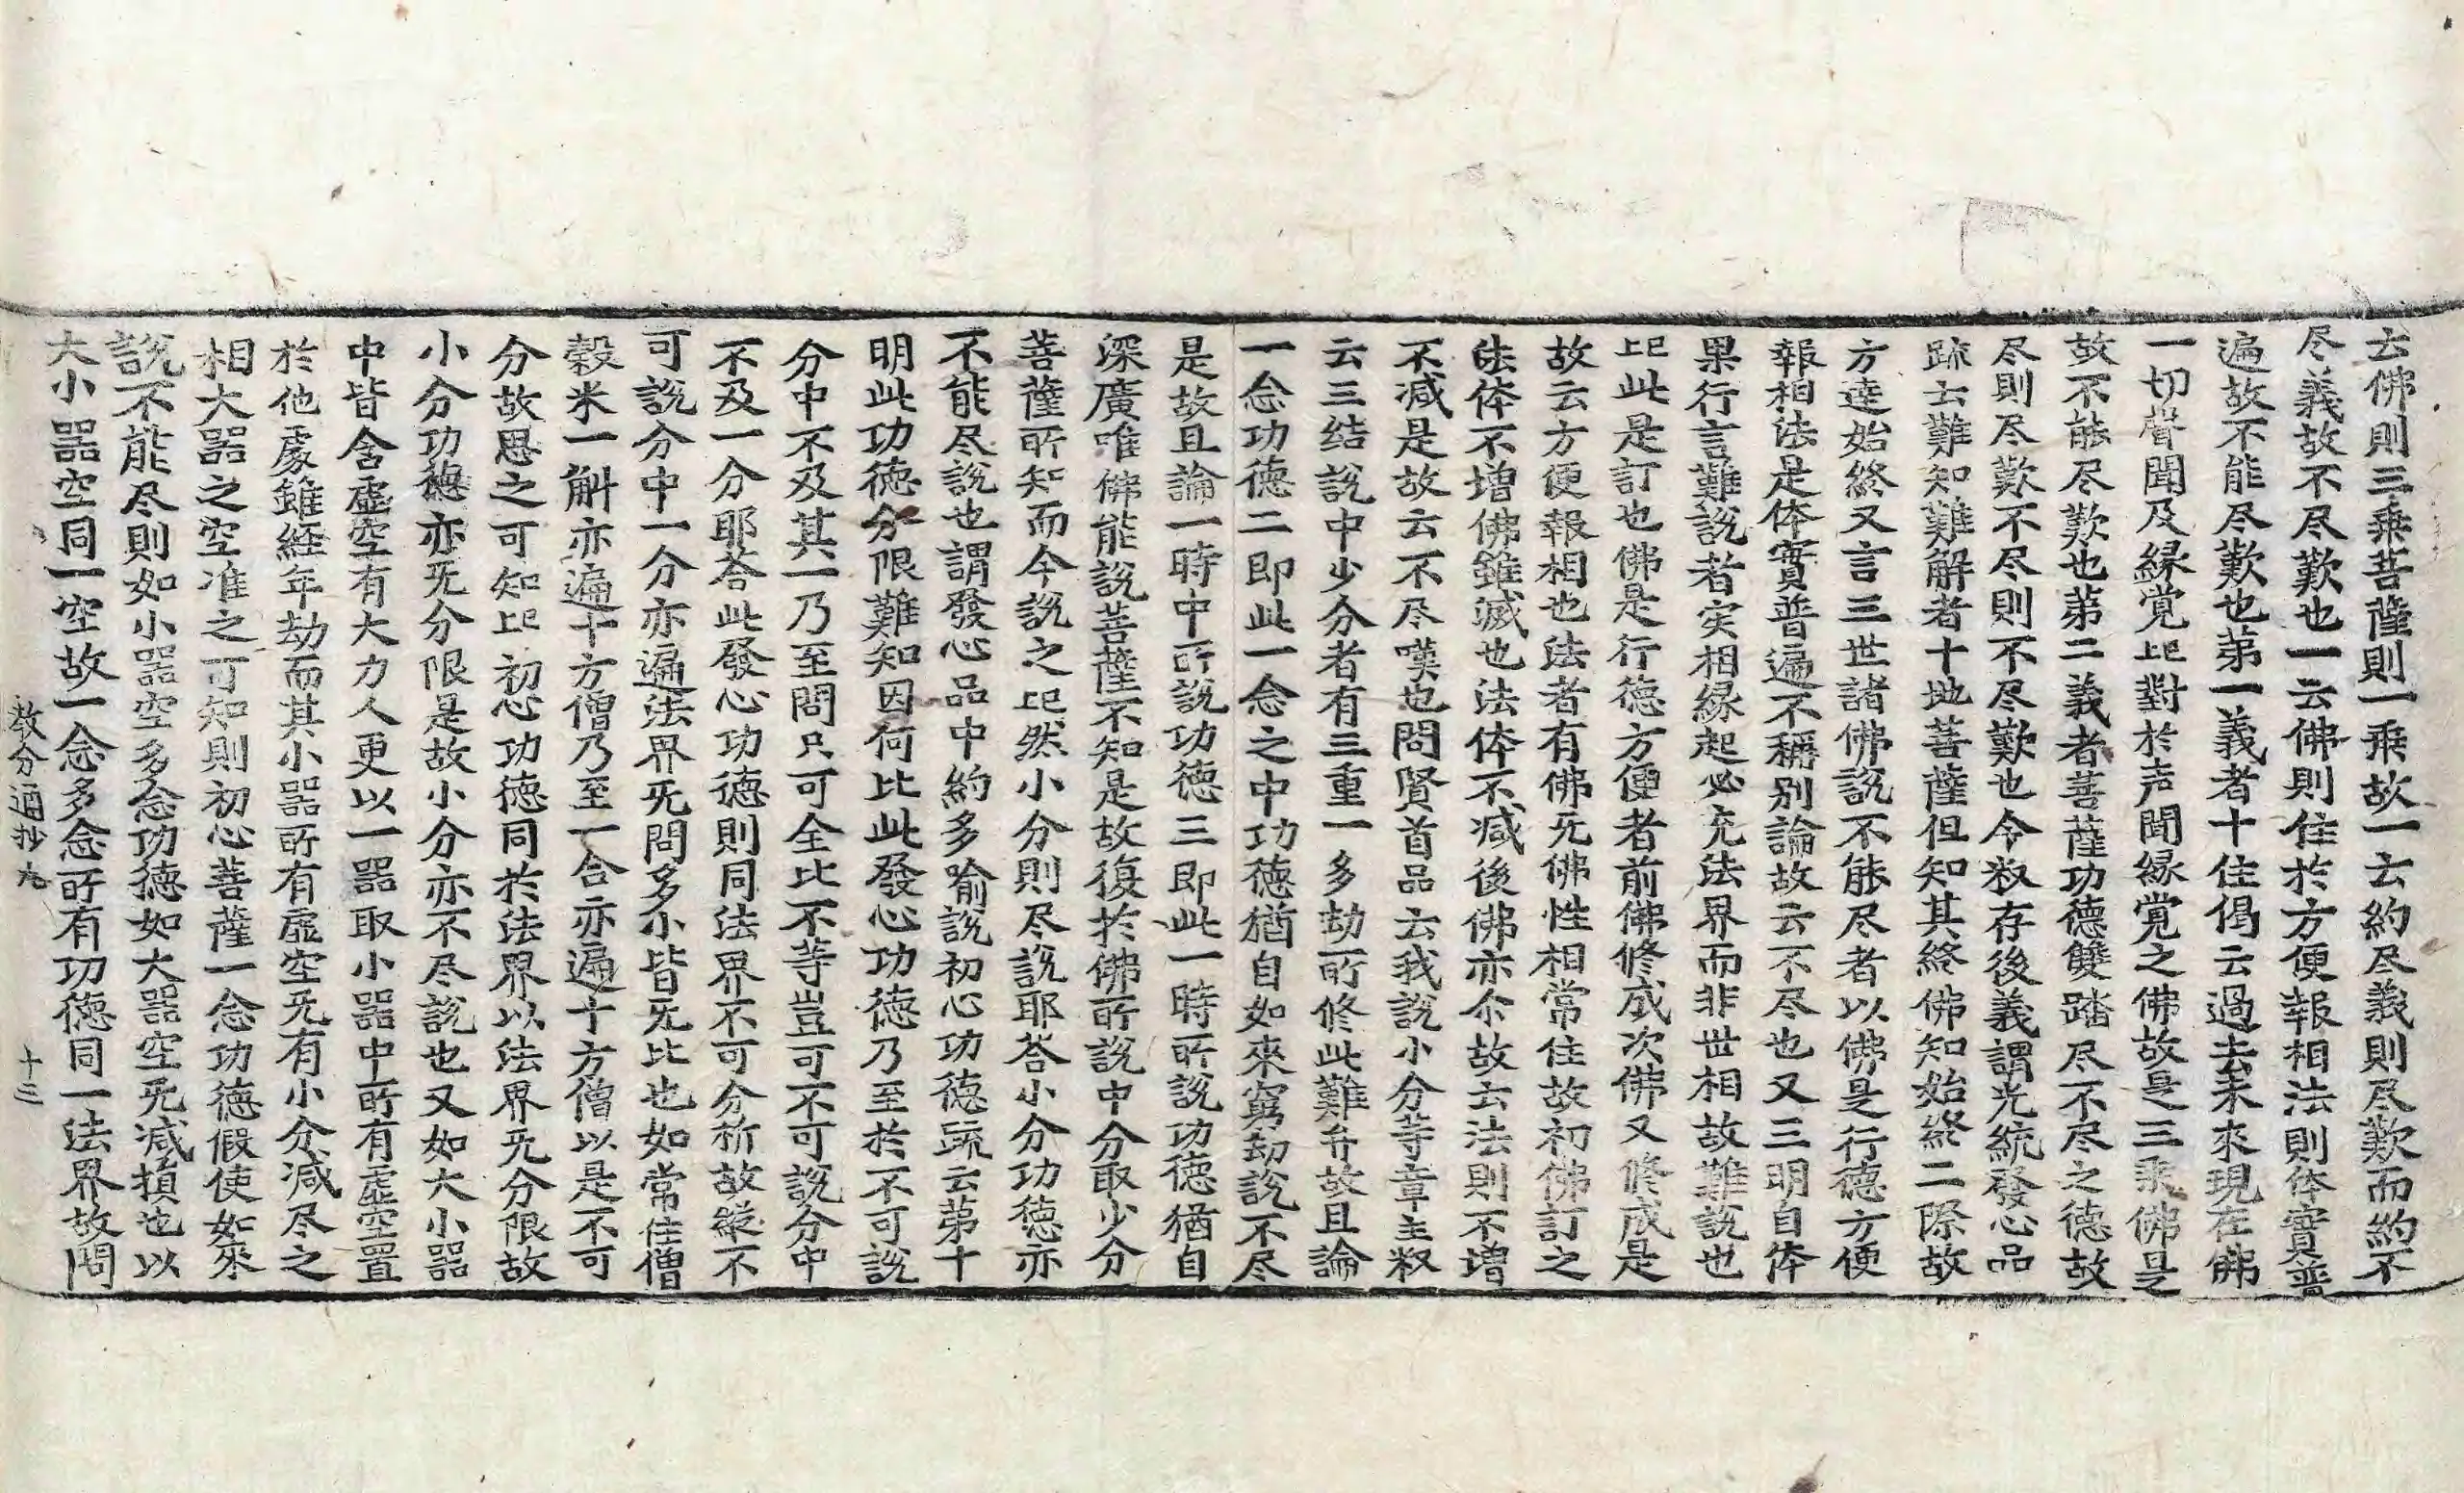 云佛則三乗菩薩則一乗故一云約尽義則尽歎而約不
尽義故不尽歎也一云佛則住於方便報相法則体實普
遍故不能尽歎也苐一義者十住偈云過去未來現在佛
一切聲聞及縁覚此對於声聞縁覚之佛故是三乘佛是
故不能尽歎也苐二義者菩薩功德雙踏尽不尽之德故
尽則尽歎不尽則不尽歎也今叔存後義謂光統發心品
䟽云難知難解者十地菩薩但知其終佛知始終二際故
方達始終又言三世諸佛說不能尽者以佛是行德方便
報相法是体實普遍不稱别論故云不尽也又三明自体
果行言難說者実相縁起必充法界而非世相故難說也
此此是訂也佛是行德方便者前佛修成次佛又修成是
故云方便報相也法者有佛旡佛性相常住故初佛訂之
法体不増佛雖滅也法体不减後佛亦尒故云法則不増
不减是故云不尽嘆也問賢首品云我說小分等章主叔
云三结說中少分者有三重一多劫所修此難弁故且論
一念功德二即此一念之中功德猶自如來窮劫說不尽
是故且論一時中所說功德三即此一時所說功德猶自
深廣唯佛能說菩薩不知是故復於佛所說中分取少分
菩薩所知而今說之此然小分則尽說耶荅小分功德亦
不能尽說也謂發心品中約多喻說初心功德䟽云苐十
明此功德分限難知因何比此發心功德乃至於不可說
分中不及其一乃至問只可全比不等豈可不可說分中
不及一分耶荅此發心功德則同法界不可分析故縱不
可說分中一分亦遍法界旡問多小皆旡比也如常住僧
穀米一斛亦遍十方僧乃至一合亦遍十方僧以是不可
分故思之可知此初心功德同於法界以法界旡分限故
小分功德亦旡分限是故小分亦不尽說也又如大小器
中皆含虛空有大力人更以一器取小器中所有虛空置
於他處雖経年劫而其小器所有虛空旡有小分减尽之
相大器之空准之可知則初心菩薩一念功德假使如來
說不能尽則如小器空多念功德如大器空旡减損也以
大小器空同一空故一念多念所有功德同一法界故問
教分通抄九　十三